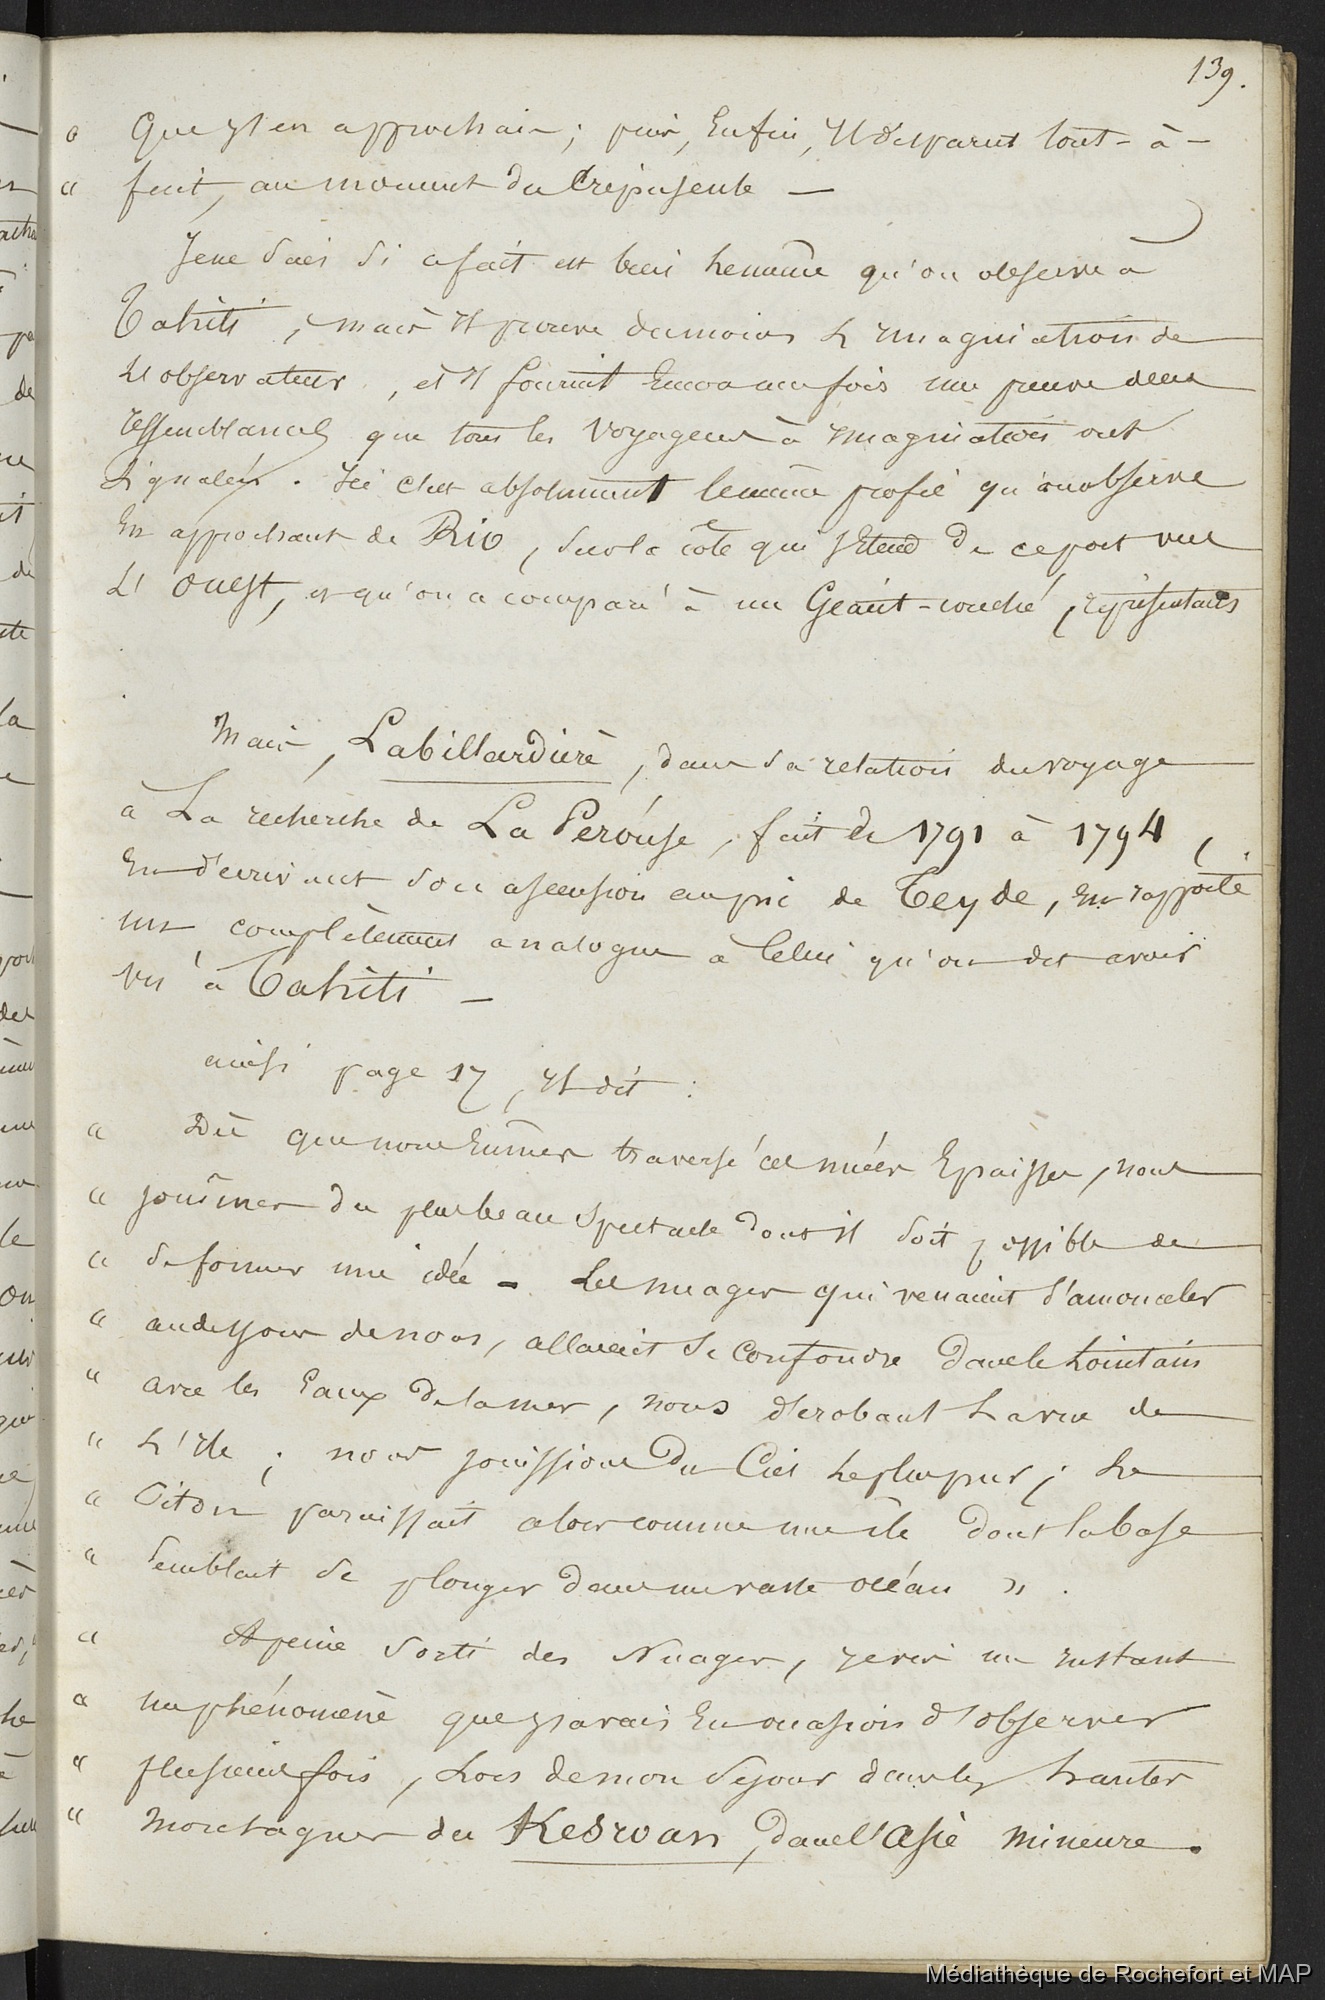 139.
" Que j'en approchais ; puis, Enfin, Il disparut tout-à-
" fait, au moment du Crépuscule —
Je ne sais si ce fait est bien le même qu'on observe à
Tahiti, mais Il prouve du moins L'Imagination de
L'observateur, et Il fournit Encore une fois une preuve des
ressemblances que tous les Voyageurs à Imagination ont
signalées. Ici c'est absolument le même profil qu'on observe
En approchant de Rio, sur la côte qui s'Etend de ce port vers
L'Ouest, et qu'on a comparé à un Géant-couché, représentant
Mais, Labillardière, dans sa relation du voyage
a La recherche de La Pérouse, fait de 1791 à 1794,
En décrivant son ascension au pic de Teyde, En rapporte
un complètement analogue a Celui qu'on dit avoir
vu à Tahiti —
ainsi page 17, Il dit :
" Dès que nous Eûmes traversé ces nuées Epaisses, nous
" jouîmes du plus beau Spectacle dont il soit possible de
" se former une idée — Les nuages qui venaient s'amonceler
" au dessous de nous, allaient se Confondre dans le Lointain
" avec les Eaux de la mer, nous dérobant La vue de
" L'Ile ; nous jouissions du Ciel le plus pur ; Le
" Piton paraissait alors comme une île dont la base
" semblait se plonger dans un vaste océan ».
" A peine sorti des Nuages, je vis un Instant
" un phénomène que j'avais Eu occasion d'observer
" plusieurs fois, Lors de mon Séjour dans les hautes
" montagnes du Kesroan, dans l'Asie mineure.
Médiathèque de Rochefort et MAP